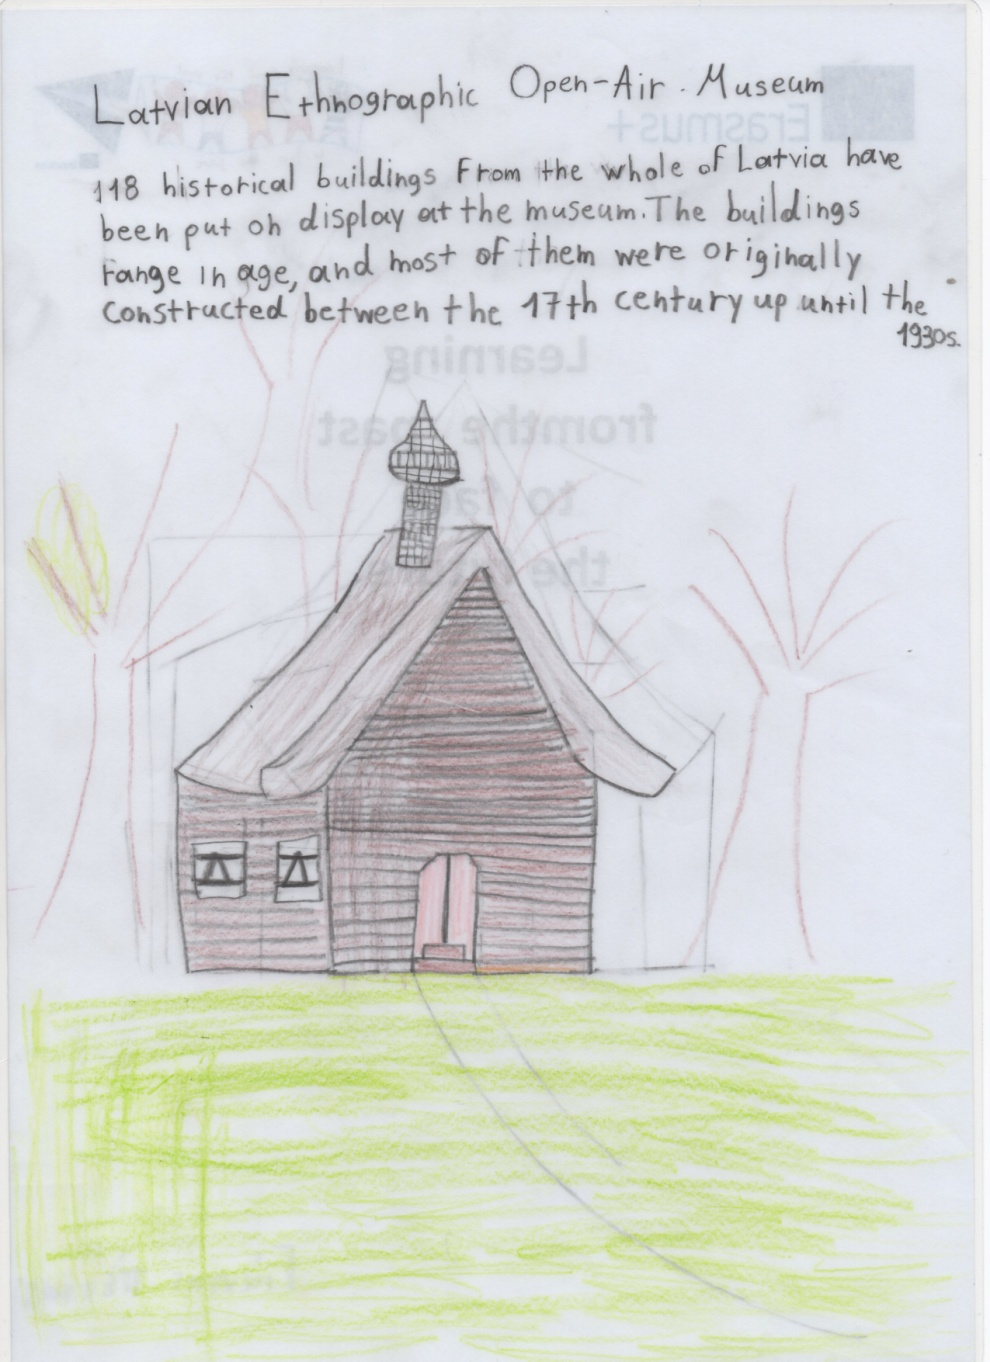 Latvian Ethnographic Open-Air Museum
Erasmus+
118 historical buildings from the whole of Latvia have
been put on display at the museum. The buildings
range in age, and most of them were originally
constructed between the 17th century up until the
1930s.
Learning
fromthe past
to
the